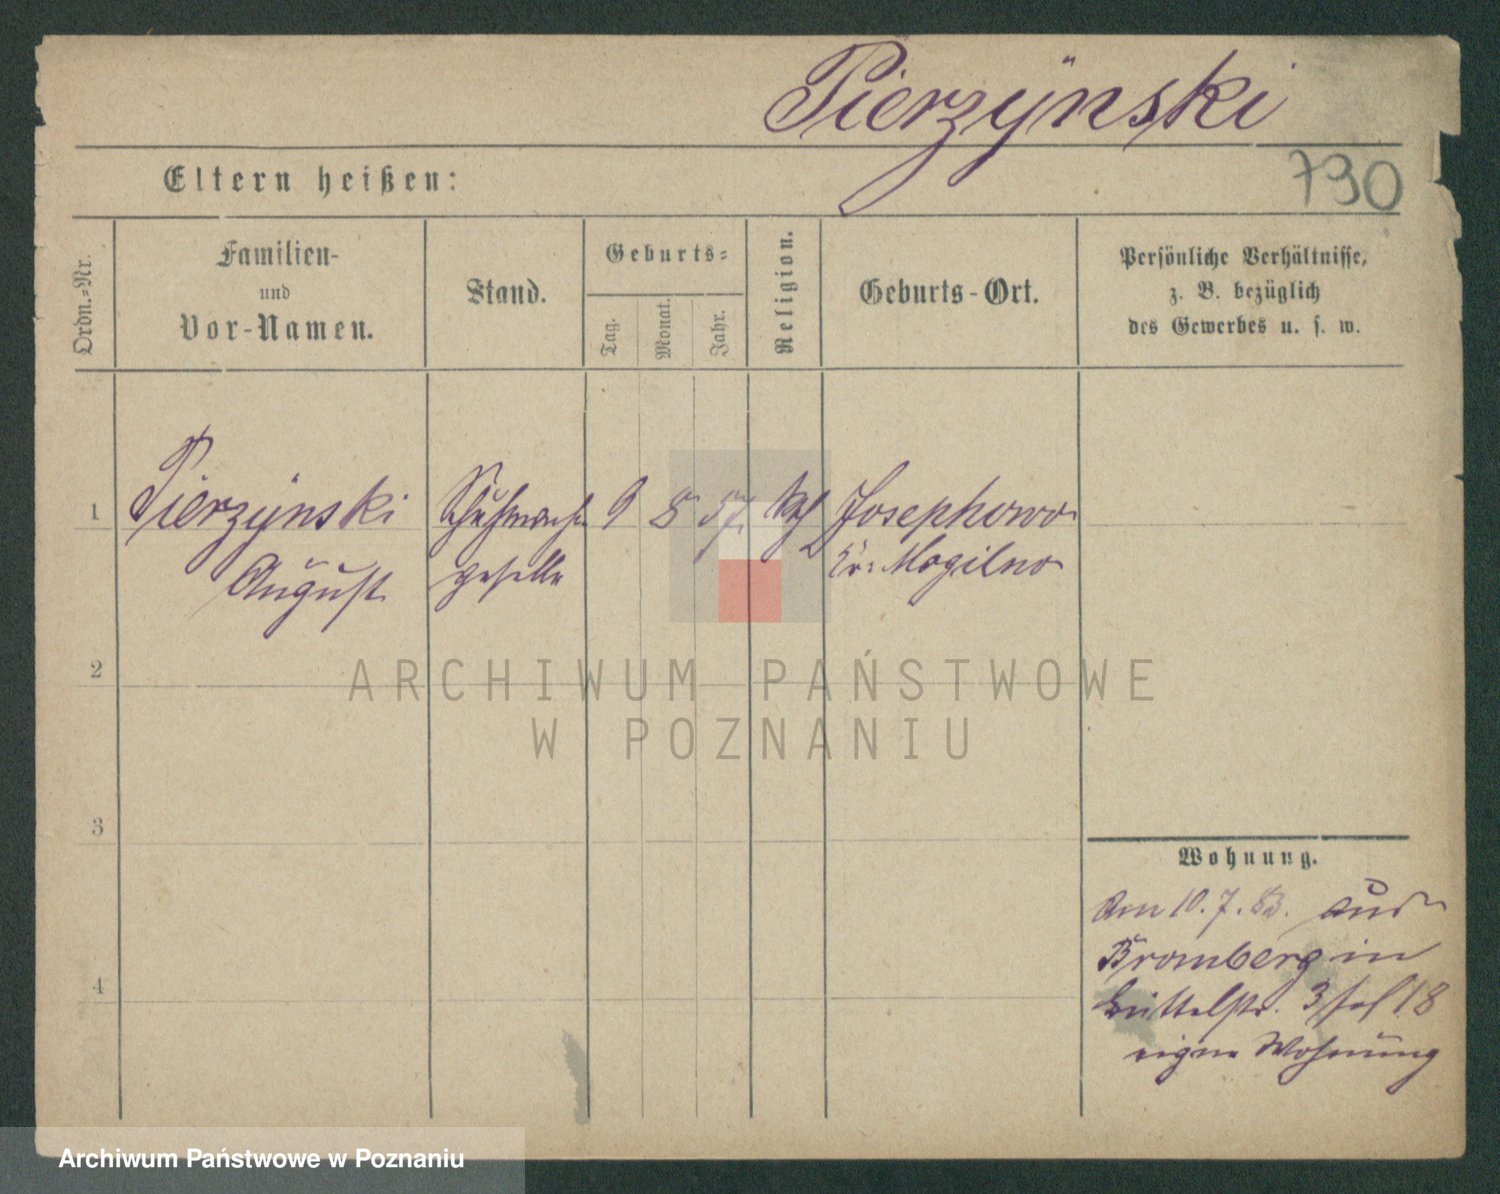 Pierzynski
730
Eltern heißen:
Ordn.-Nr.
Familien-
und
Vor-Namen.
Stand.
Geburts-
Tag.
Monat.
Jahr.
Religion.
Geburts-Ort.
Persönliche Verhältnisse,
z. B. bezüglich
des Gewerbes u. s. w.
1
Pierzynski
August
Schuhmacher
geselle
9 8 57.
kath
Josephowo
Kr: Mogilno
2
3
4
Wohnung.
Am 10.7.83. aus
Bromberg in
Büttelstr. 18
eigene Wohnung
ARCHIWUM PAŃSTWOWE
W POZNANIU
Archiwum Państwowe w Poznaniu